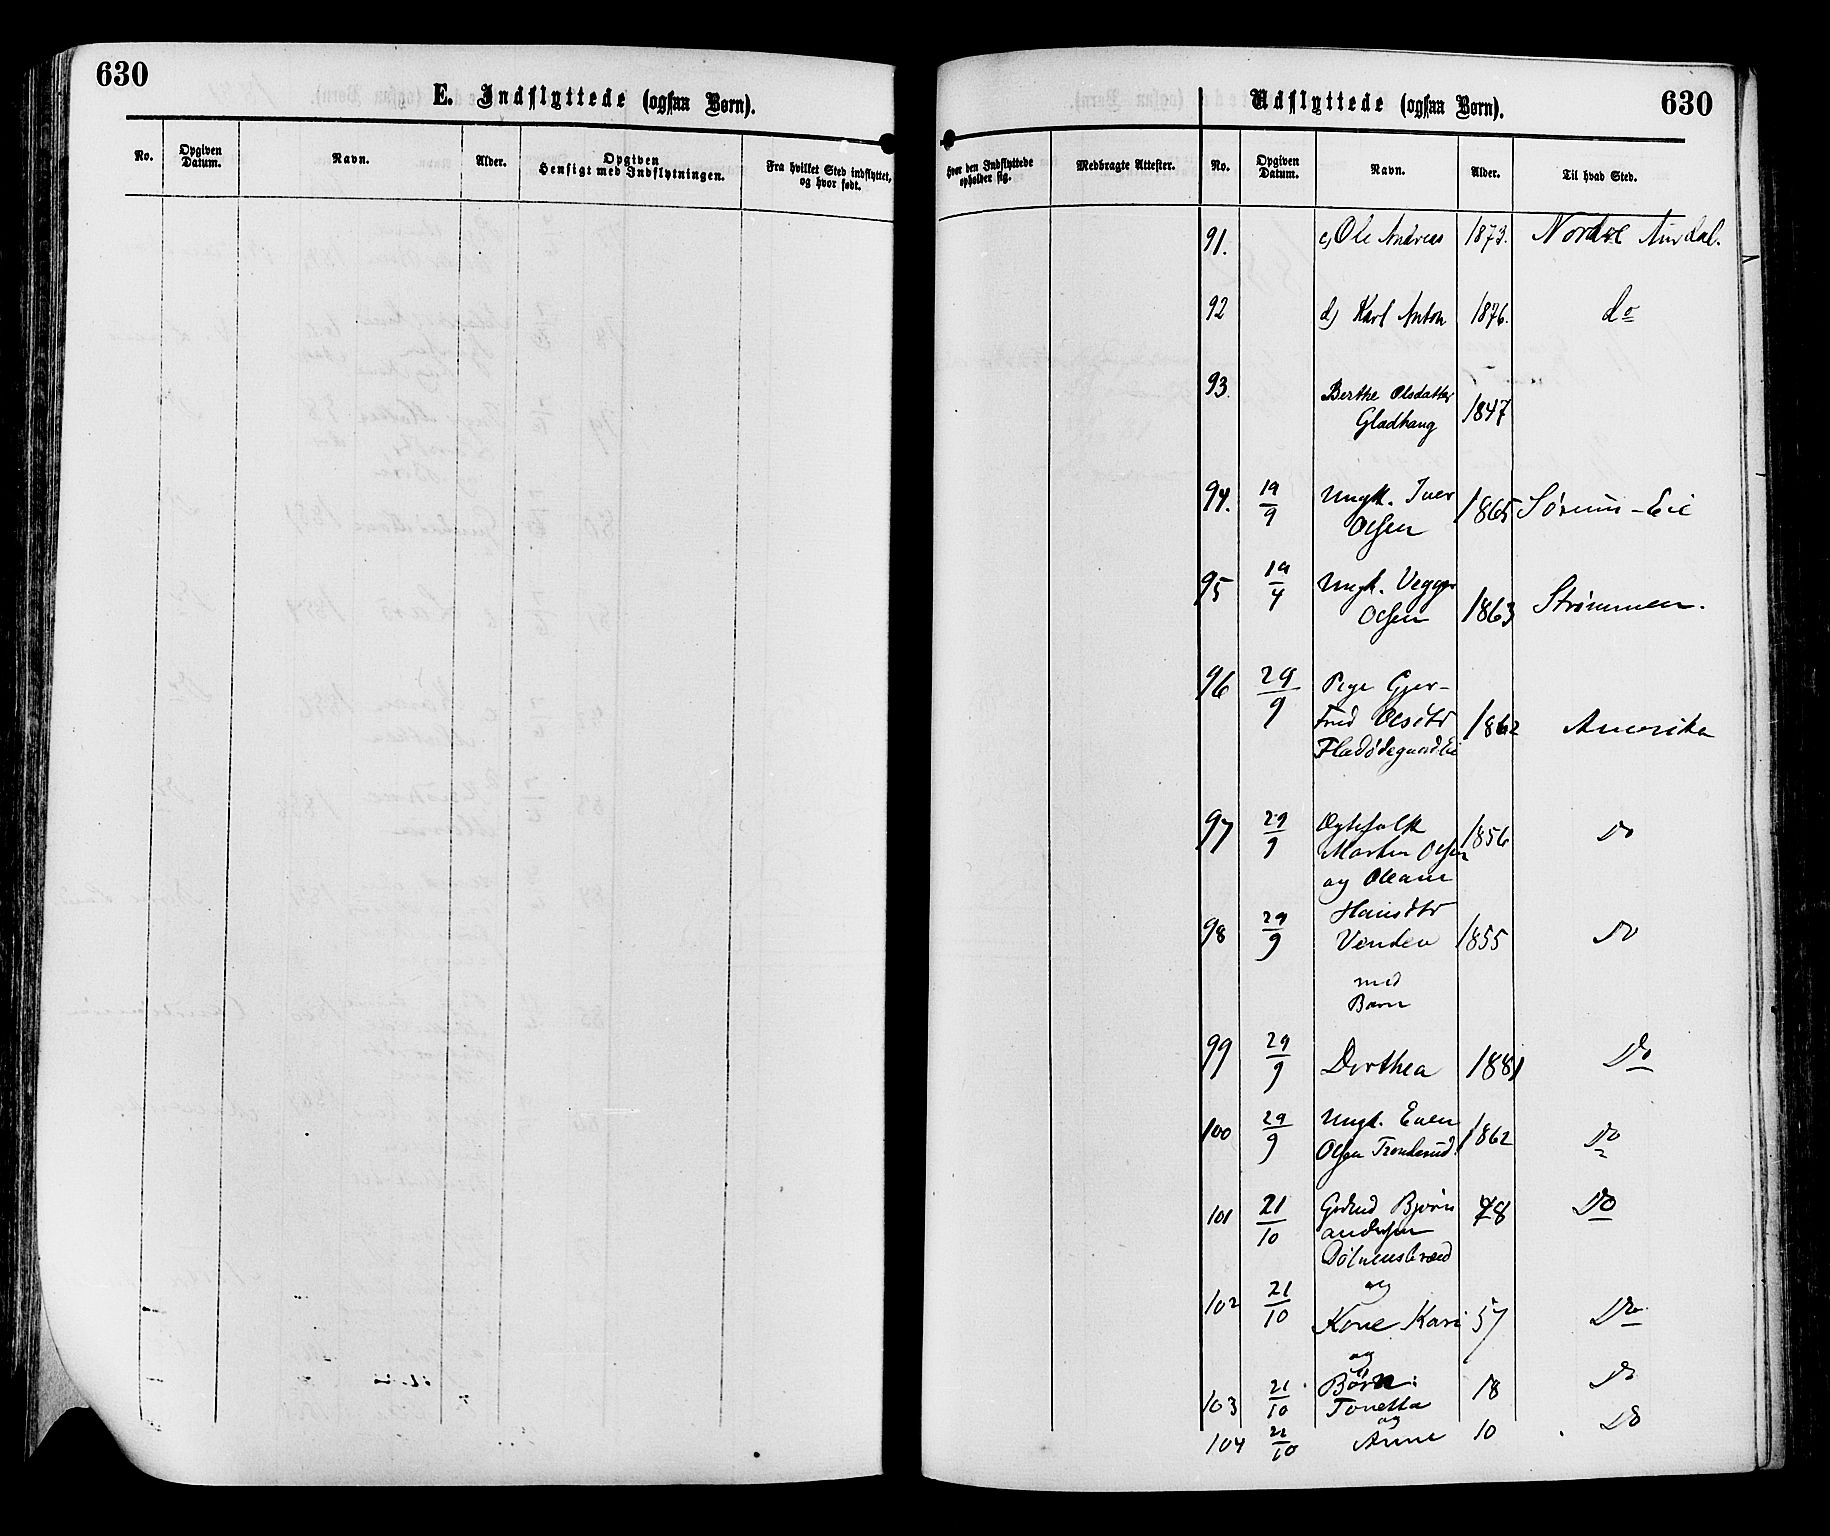 630
E. Indflyttede (ogsaa Børn).
No.
Opgiven Datum.
Navn.
Alder.
Opgiven Hensigt med Indflytningen.
Fra hvilket Sted indflyttet, og hvor født.
Udflyttede (ogsaa Børn).
630
Hvor den Indflyttede opholder sig.
Medbragte Attester.
No.
Opgiven Datum.
Navn.
Alder.
Til hvad Sted.
91. c) Ole Andreas 1873. Nordre Aurdal.
92 d) Karl Anton 1876. do
93. Berthe Olsdatter 1847
Gladhaug
94. 19/9 Ungk. Iver 1865 Sørum-Eie
Olsen
95 19/4 Ungk. 1863 Strømmen.
Olsen
96 29/9 Pige Gjer-
trud Olsdtr 1862 Amerika
97 29/9 Ægtefolk 1856 Do
Marten Olsen
og Oleane
Hansdtr
98 29/9 Venden 1855 Do
med
Barn
99 29/9 Dorthea 1881 Do
100 29/9 Ungk. Even 1862 Do
Olsen Tronderud
101 21/10 Gdmd Bjørn 78 Do
Andersen
og
102 21/10 Kone Kari 57 Do
og
Børn:
103 21/10 Tonetta 18 Do
og
104 21/10 Anne 10 Do